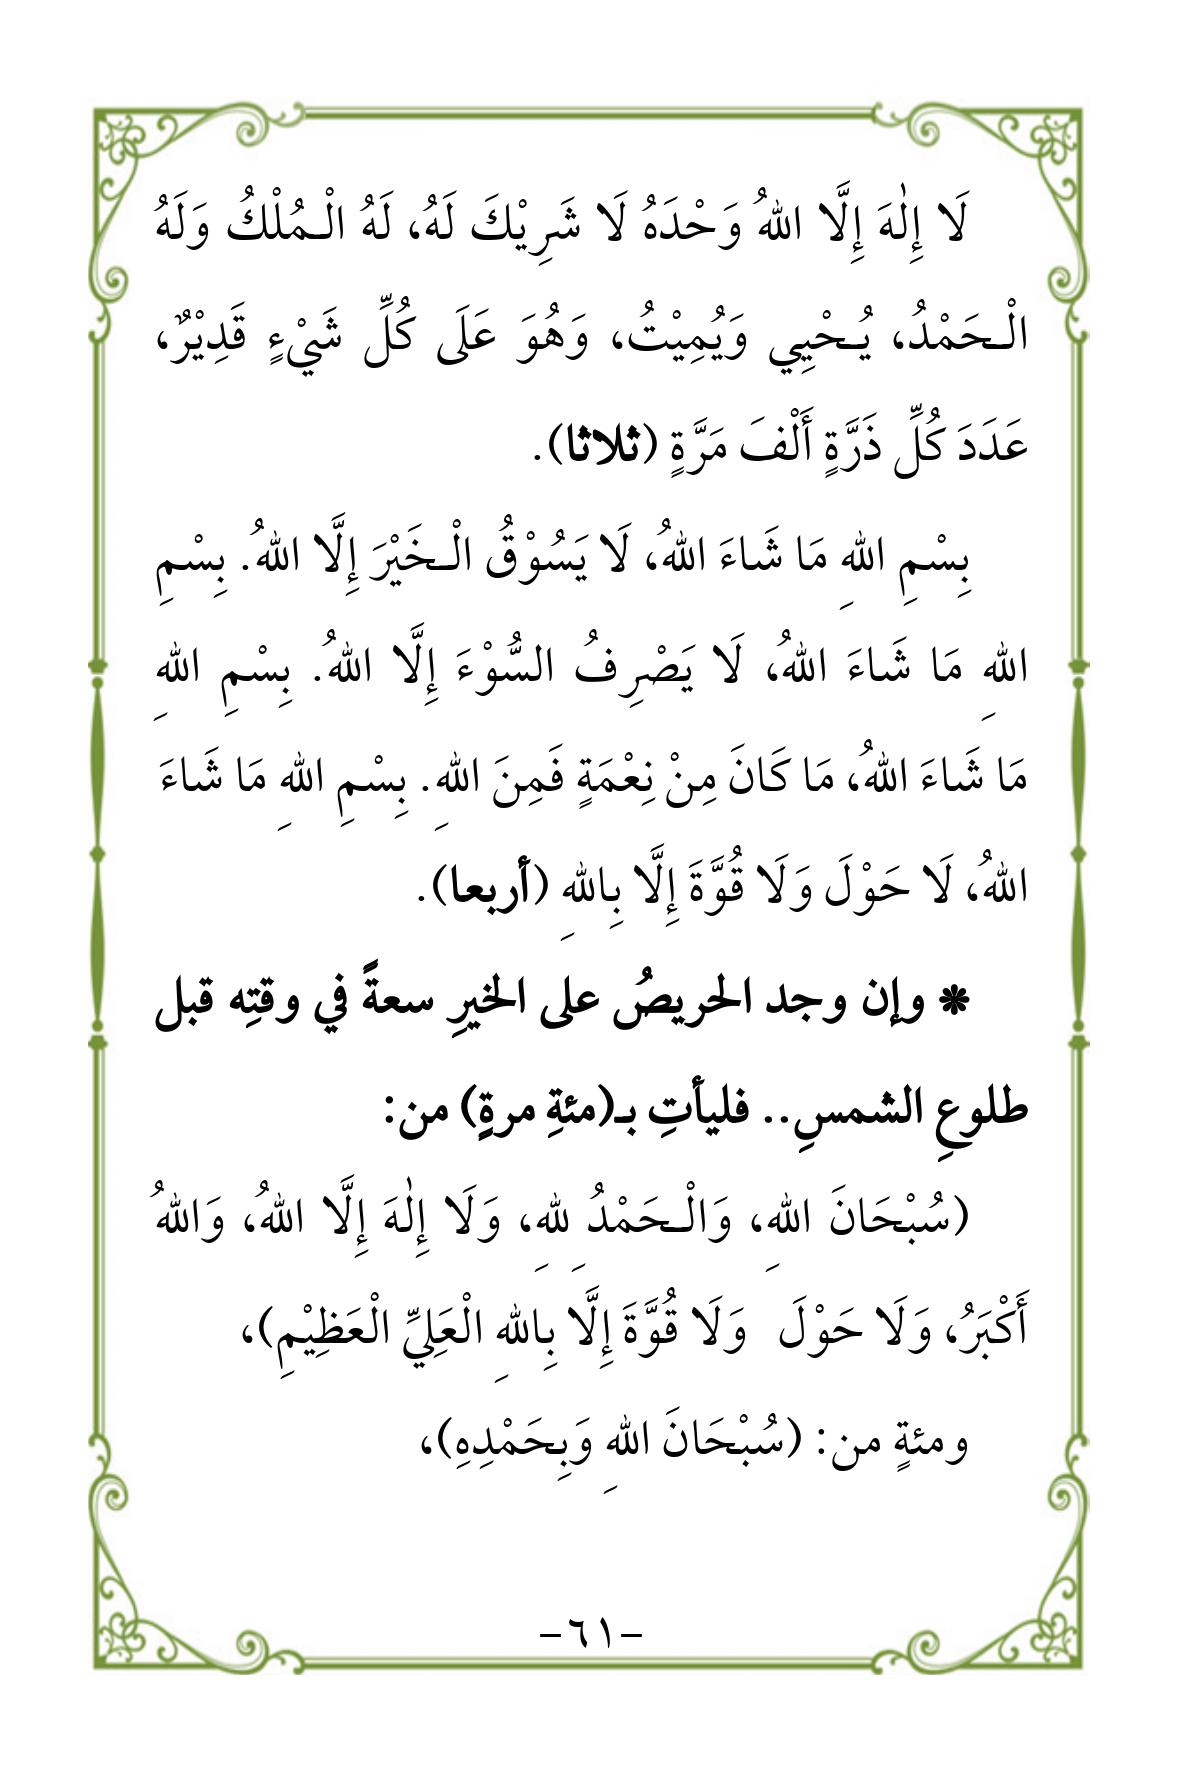 لَا إِلٰهَ إِلَّا اللهُ وَحْدَهُ لَا شَرِيْكَ لَهُ، لَهُ الْـمُلْكُ وَلَهُ
الْـحَمْدُ، يُـحْيِي وَيُمِيْتُ، وَهُوَ عَلَى كُلِّ شَيْءٍ قَدِيْرٌ،
عَدَدَ كُلِّ ذَرَّةٍ أَلْفَ مَرَّةٍ (ثلاثا).
بِسْمِ اللهِ مَا شَاءَ اللهُ، لَا يَسُوْقُ الْـخَيْرَ إِلَّا اللهُ. بِسْمِ
اللهِ مَا شَاءَ اللهُ، لَا يَصْرِفُ السُّوْءَ إِلَّا اللهُ. بِسْمِ اللهِ
مَا شَاءَ اللهُ، مَا كَانَ مِنْ نِعْمَةٍ فَمِنَ اللهِ. بِسْمِ اللهِ مَا شَاءَ
اللهُ، لَا حَوْلَ وَلَا قُوَّةَ إِلَّا بِاللهِ (أربعا).
* وإن وجد الحريصُ على الخيرِ سعةً في وقتِه قبل
طلوعِ الشمسِ.. فليأتِ بـ(مئةِ مرةٍ) من:
(سُبْحَانَ اللهِ، وَالْـحَمْدُ لِلهِ، وَلَا إِلٰهَ إِلَّا اللهُ، وَاللهُ
أَكْبَرُ، وَلَا حَوْلَ وَلَا قُوَّةَ إِلَّا بِاللهِ الْعَلِيِّ الْعَظِيْمِ)،
ومئةٍ من: (سُبْحَانَ اللهِ وَبِحَمْدِهِ)،
-٦١-